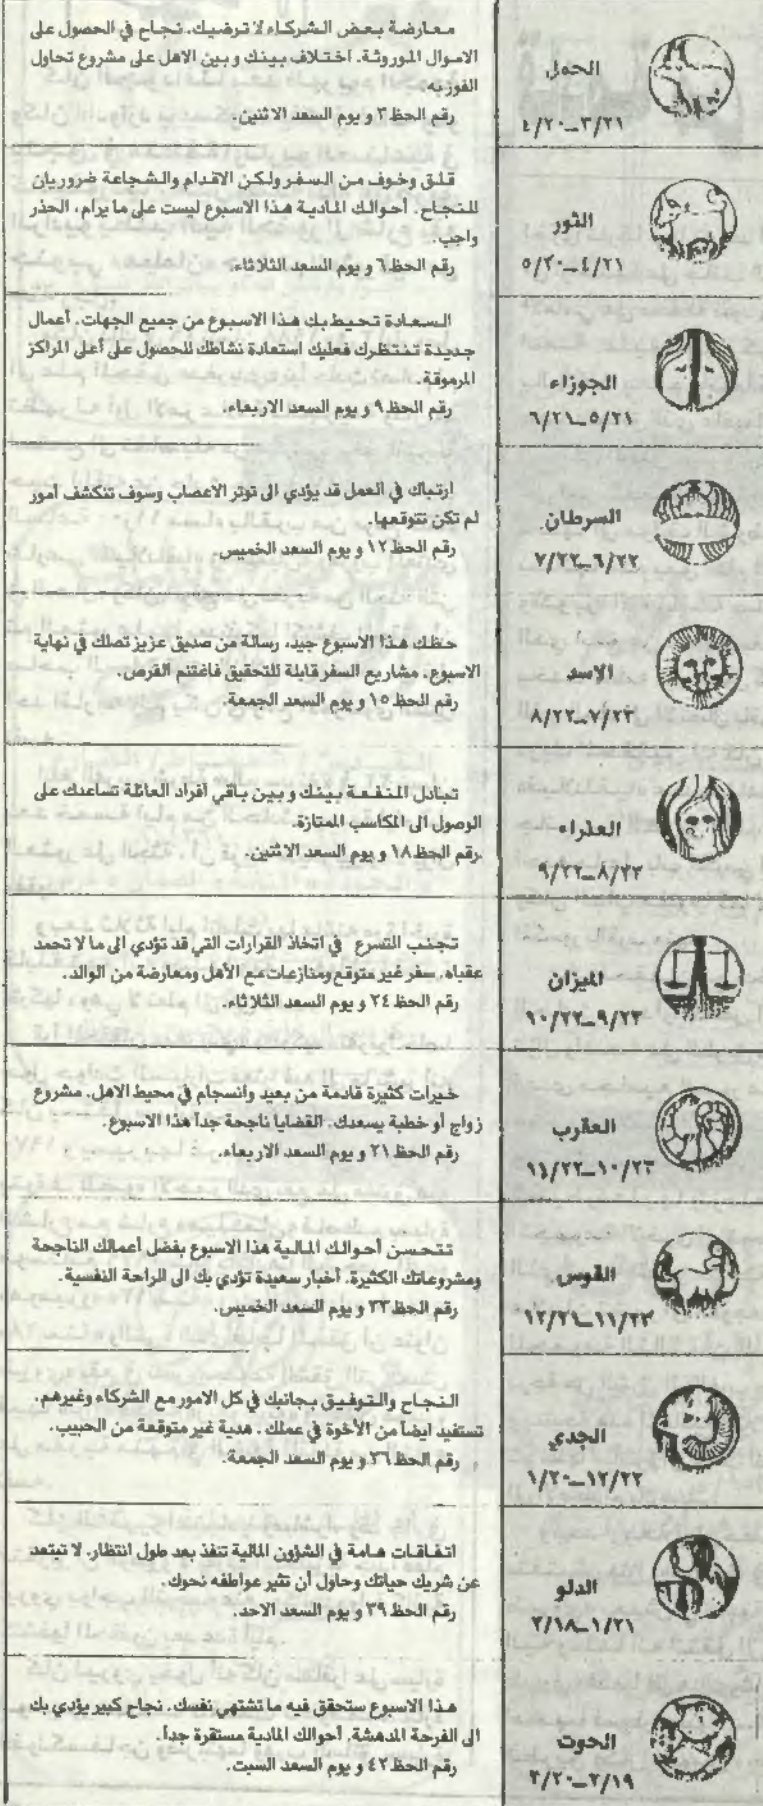 الحمل
٣/٢١ــ٤/٢٠
معارضة بعض الشركاء لا ترضيك. نجاح في الحصول على
الاموال الموروثة. اختلاف بينك و بين الاهل على مشروع تحاول
الفوز به
رقم الحظ ٣ و يوم السعد الاثنين.
الثور
٤/٢١ــ٥/٢٠
قلق وخوف من السفر ولكن الاقدام والشجاعة ضروريان
للنجاح. أحوالك المادية هذا الاسبوع ليست على ما يرام، الحذر
واجب.
رقم الحظ ٦ و يوم السعد الثلاثاء.
الجوزاء
٥/٢١ــ٦/٢١
السعادة تحيط بك هذا الاسبوع من جميع الجهات. أعمال
جديدة تنتظرك فعليك استعادة نشاطك للحصول على أعلى المراكز
المرموقة.
رقم الحظ ٩ و يوم السعد الاربعاء.
السرطان
٦/٢٢ــ٧/٢٢
ارتباك في العمل قد يؤدي الى توتر الاعصاب وسوف تنكشف أمور
لم تكن تتوقعها.
رقم الحظ ١٢ و يوم السعد الخميس.
الاسد
٧/٢٣ــ٨/٢٢
حظك هذا الاسبوع جيد، رسالة من صديق عزيز تصلك في نهاية
الاسبوع. مشاريع السفر قابلة للتحقيق فاغتنم الفرص.
رقم الحظ ١٥ و يوم السعد الجمعة.
العذراء
٨/٢٣ــ٩/٢٢
تبادل المنفعة بينك و بين باقي أفراد العائلة تساعدك على
الوصول الى المكاسب الممتازة.
رقم الحظ ١٨ و يوم السعد الاثنين.
الميزان
٩/٢٣ــ١٠/٢٢
تجنب التسرع في اتخاذ القرارات التي قد تؤدي الى ما لا تحمد
عقباه. سفر غير متوقع ومنازعات مع الأهل ومعارضة من الوالد.
رقم الحظ ٢٤ و يوم السعد الثلاثاء.
العقرب
١٠/٢٣ــ١١/٢٢
خيرات كثيرة قادمة من بعيد وانسجام في محيط الاهل. مشروع
زواج أو خطبة يسعدك. القضايا ناجحة جداً هذا الاسبوع.
رقم الحظ ٢١ و يوم السعد الاربعاء.
القوس
١١/٢٣ــ١٢/٢١
تتحسن أحوالك المالية هذا الاسبوع بفضل أعمالك الناجحة
ومشروعاتك الكثيرة. أخبار سعيدة تؤدي بك الى الراحة النفسية.
رقم الحظ ٣٣ و يوم السعد الخميس.
الجدي
١٢/٢٢ــ١/٢٠
النجاح والتوفيق بجانبك في كل الامور مع الشركاء وغيرهم.
تستفيد ايضاً من الأخوة في عملك. هدية غير متوقعة من الحبيب.
رقم الحظ ٣٦ و يوم السعد الجمعة.
الدلو
١/٢١ــ٢/١٨
اتفاقات هامة في الشؤون المالية تنفذ بعد طول انتظار. لا تبتعد
عن شريك حياتك وحاول أن تثير عواطفه نحوك.
رقم الحظ ٣٩ و يوم السعد الاحد.
الحوت
٢/١٩ــ٣/٢٠
هذا الاسبوع ستحقق فيه ما تشتهي نفسك. نجاح كبير يؤدي بك
الى الفرحة المدهشة. أحوالك المادية مستقرة جداً.
رقم الحظ ٤٢ و يوم السعد السبت.